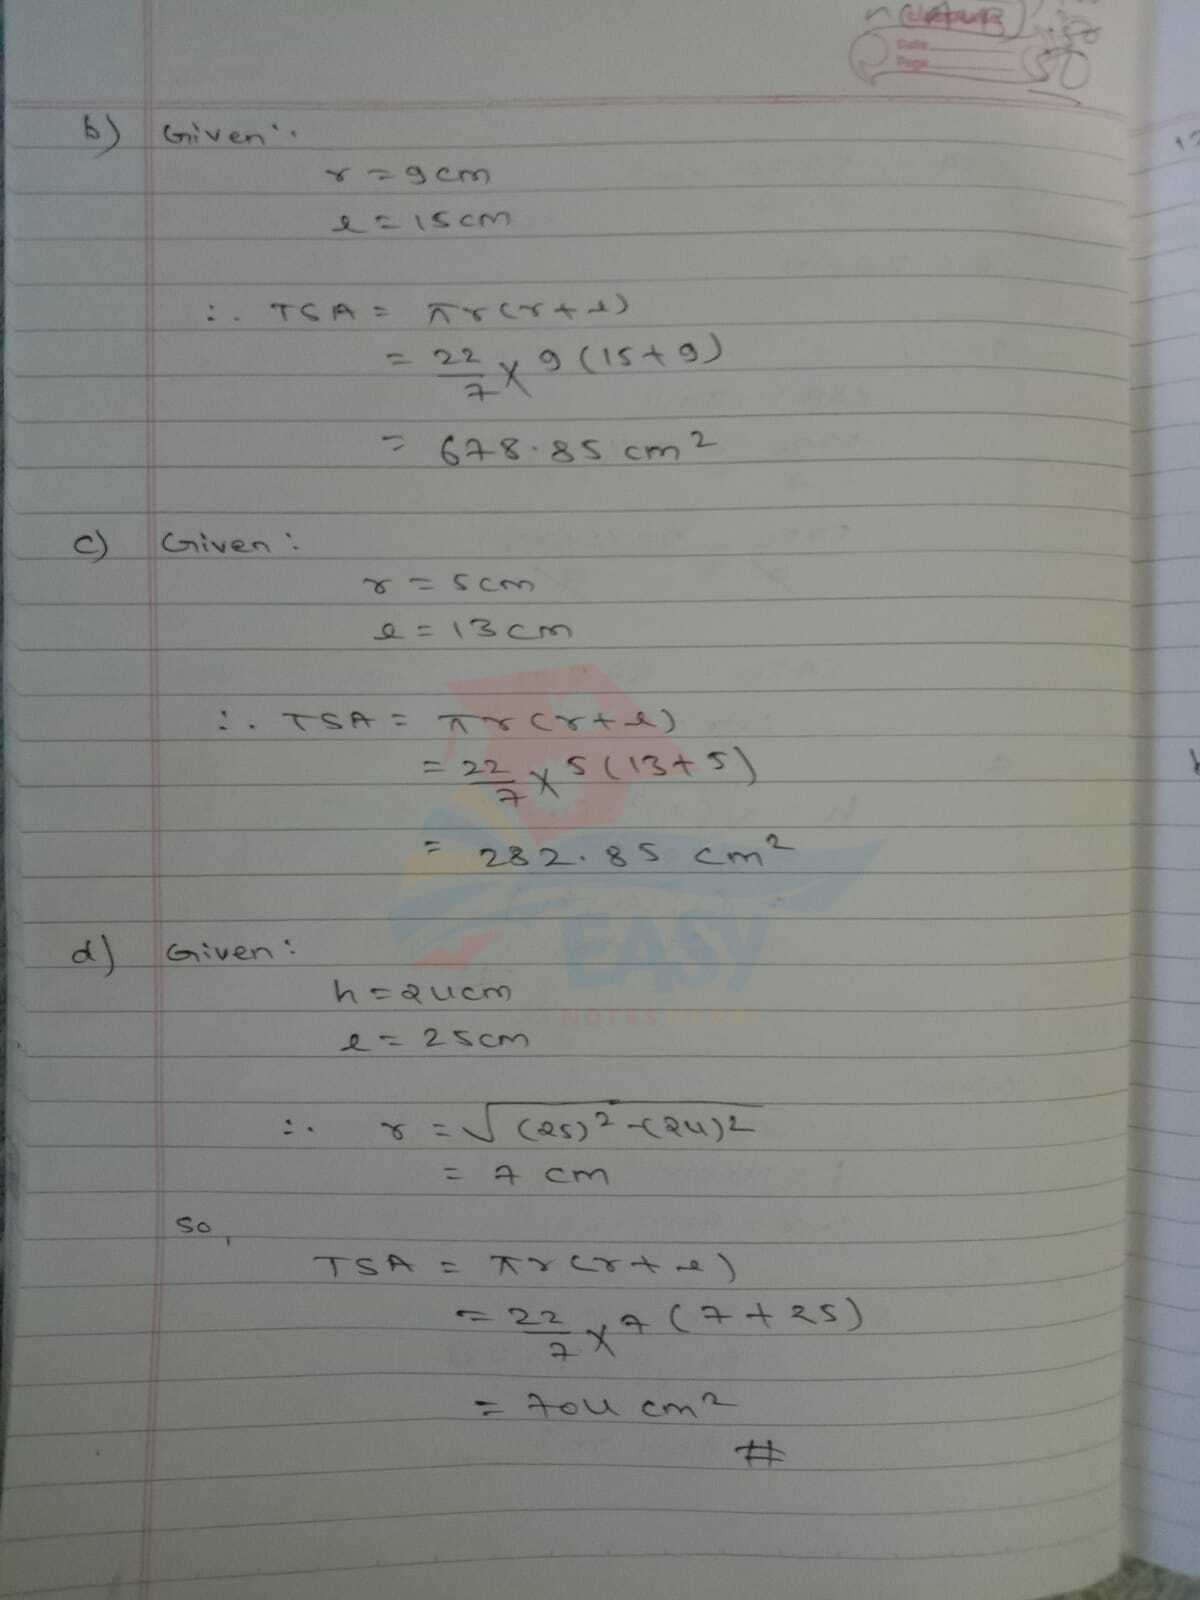 Date
Page
50
b) Given:
r = 9cm
l = 15cm
∴ TSA = πr(r+l)
= 22/7 × 9(15+9)
= 678.85 cm²
c) Given:
r = 5cm
l = 13cm
∴ TSA = πr(r+l)
= 22/7 × 5(13+5)
= 282.85 cm²
EASY
d) Given:
h = 24cm
NOTES
l = 25cm
∴ r = √(25)²-(24)²
= 7 cm
so,
TSA = πr(r+l)
= 22/7 × 7(7+25)
= 704 cm²
#